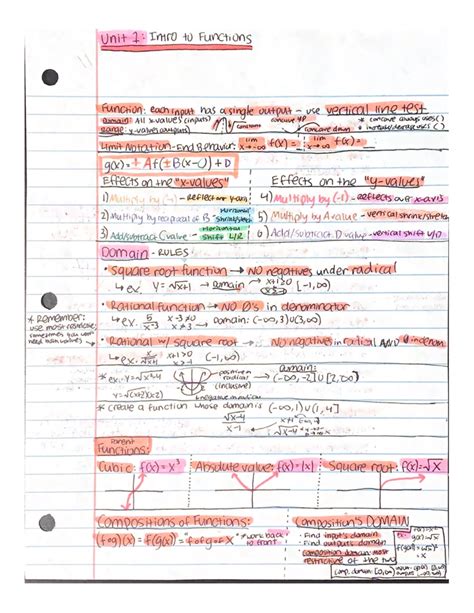 Unit 1: Intro to Functions
Function: each input has a single output - use vertical line test
domain: all x-values (inputs)
concave up
* concave always uses ( )
range: y-values (outputs)
concave down
* increase/decrease uses ( )
Limit Notation-End Behavior: lim x→-∞ f(x)= lim x→∞ f(x)=
g(x)= ± Af(±B(x-C)) + D
Effects on the "x-values" Effects on the "y-values"
1) Multiply by (-1) - Reflect over y-axis 4) Multiply by (-1) - reflects over x-axis
2) Multiply by reciprocal of B - Horizontal shrink/stretch 5) Multiply by A value - vertical shrink/stretch
3) Add/subtract C value - Horizontal shift L/R 6) Add/subtract D value - vertical shift U/D
Domain - RULES:
• Square root function → NO negatives under radical
↳ ex. Y = √x+1 → domain x+1≥0 x≥-1 [-1,∞)
• Rational function → NO 0's in denominator
* Remember:
use most restrictive,
sometimes you need
↳ ex. 5/x-3 x-3≠0 x≠3 → domain: (-∞,3)∪(3,∞)
• Rational w/ square root → No negatives in radical AND 0 in denom
↳ ex. x/√x+1 x+1>0 x>-1 (-1,∞)
* ex. Y=√x²-4
positive in radical (inclusive)
domain:
(-∞,-2]∪[2,∞)
Y=√(x+2)(x-2)
negative in radical
* create a function whose domain is (-∞,1)∪(1,4]
Parent
Functions:
Cubic: f(x)=x³ Absolute value: f(x)=|x| Square root: f(x)=√x
Compositions of Functions: Composition's DOMAIN
(f∘g)(x) = f(g(x)) = f of g of x
* work back to front
• Find input's domain
• Find output's domain
composition domain: most
restrictive of the two
comp. domain: [0,∞)